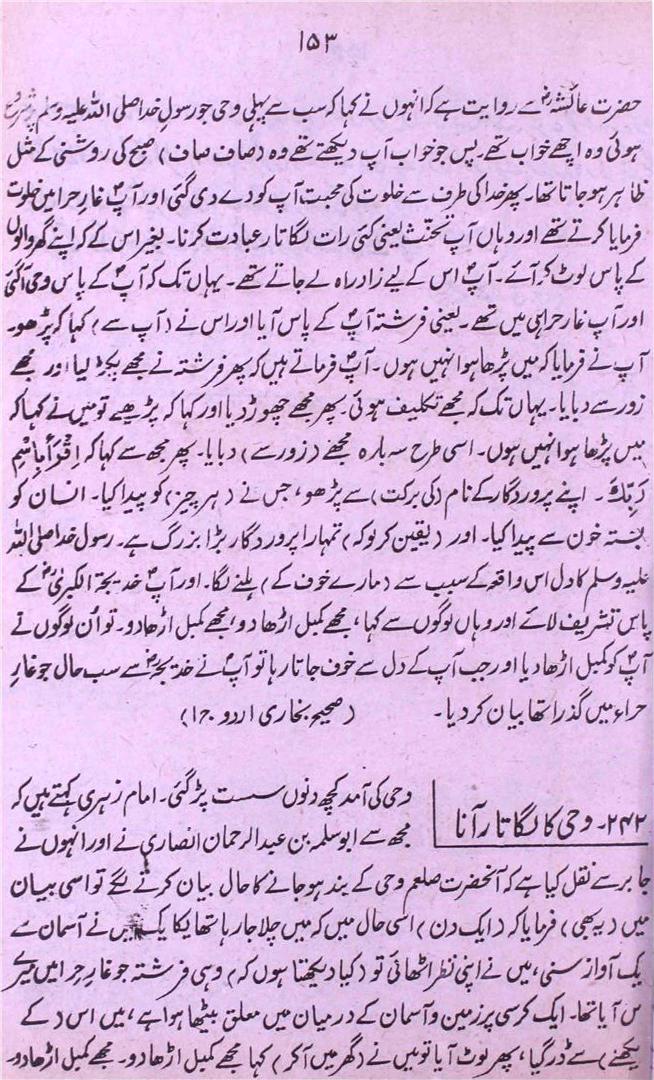 ۱۵۳
حضرت عائشہؓ سے روایت ہے کہ انہوں نے کہا کہ سب سے پہلی وحی جو رسول خدا صلی اللہ علیہ وسلم پر شروع
ہوئی وہ اچھے خواب تھے۔ پس جو خواب آپ دیکھتے تھے وہ (صاف صاف) صبح کی روشنی کے مثل
ظاہر ہو جاتا تھا۔ پھر خدا کی طرف سے خلوت کی محبت آپ کو دے دی گئی اور آپؐ غار حرا میں خلوت
فرمایا کرتے تھے اور وہاں آپ تحنث یعنی کئی رات لگاتار عبادت کرنا۔ بغیر اس کے کہ اپنے گھر والوں
کے پاس لوٹ کر آئے۔ آپؐ اس کے لیے زاد راہ لے جاتے تھے۔ یہاں تک کہ آپؐ کے پاس وحی آگئی
اور آپ غار حرا ہی میں تھے۔ یعنی فرشتہ آپؐ کے پاس آیا اور اس نے (آپ سے) کہا کہ پڑھو۔
آپ نے فرمایا کہ میں پڑھا ہوا نہیں ہوں۔ آپؐ فرماتے ہیں کہ پھر فرشتہ نے مجھے پکڑ لیا اور مجھے
زور سے دبایا۔ یہاں تک کہ مجھے تکلیف ہوئی۔ پھر مجھے چھوڑ دیا اور کہا کہ پڑھیے تو میں نے کہا کہ
میں پڑھا ہوا نہیں ہوں۔ اسی طرح سہ بارہ مجھے (زور سے) دبایا۔ پھر مجھ سے کہا کہ اِقْرَأْ بِاسْمِ
رَبِّكَ۔ اپنے پروردگار کے نام (کی برکت) سے پڑھو، جس نے (ہر چیز) کو پیدا کیا۔ انسان کو
بستہ خون سے پیدا کیا۔ اور (یقین کر لو کہ) تمہارا پروردگار بڑا بزرگ ہے۔ رسول خدا صلی اللہ
علیہ وسلم کا دل اس واقعہ کے سبب سے (مارے خوف کے) ہلنے لگا۔ اور آپؐ خدیجۃ الکبریٰؓ کے
پاس تشریف لائے اور وہاں لوگوں سے کہا، مجھے کمبل اڑھا دو، مجھے کمبل اڑھا دو۔ تو اُن لوگوں نے
آپؐ کو کمبل اڑھا دیا اور جب آپ کے دل سے خوف جاتا رہا تو آپؐ نے خدیجہؓ سے سب حال جو غارِ
حراء میں گذرا تھا بیان کر دیا۔ (صحیح بخاری اردو ج ۱)
۲۴۲۔ وحی کا لگاتار آنا
وحی کی آمد کچھ دنوں سست پڑ گئی۔ امام زہری کہتے ہیں کہ
مجھ سے ابو سلمہ بن عبد الرحمان انصاری نے اور انہوں نے
جابر سے نقل کیا ہے کہ آنحضرت صلعم وحی کے بند ہو جانے کا حال بیان کرنے لگے تو اسی بیان
میں (یہ بھی) فرمایا کہ (ایک دن) اسی حال میں کہ میں چلا جا رہا تھا یکا یک میں نے آسمان سے
یک آواز سنی، میں نے اپنی نظر اٹھائی تو (کیا دیکھتا ہوں کہ) وہی فرشتہ جو غار حرا میں میرے
س آیا تھا۔ ایک کرسی پر زمین و آسمان کے درمیان میں معلق بیٹھا ہوا ہے، میں اس (کے
یکھنے) سے ڈر گیا، پھر لوٹ آیا تو میں نے (گھر میں آکر) کہا مجھے کمبل اڑھا دو۔ مجھے کمبل اڑھا دو۔